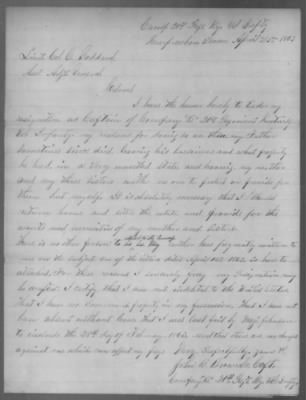 Camp 20th Regt Ky Vol Infty
Murfreesboro Tenn April 21st 1863
Lieut Col C. Goddard
Asst Adjt General
Colonel
I have the honor hereby to tender my
resignation as Captain of Company "K" 20th Regiment Kentucky
Vol Infantry. My reasons for doing so are these, my Father
sometime since died, leaving his business and what property
he had, in a very unsettled state and leaving my mother
and my three sisters with no one to protect or provide for
them but myself. It is absolutely necessary that I should
return home and settle the estate and provide for the
wants and necessities of my mother and sisters.
There is no other person to do so. My Father has frequently written to
me on the subject one of the letters dated April 1862 is here to
attached. For these reasons I sincerely pray my resignation may
be accepted. I certify that I am not indebted to the United States
That I have no Government property in my possession That I have not
been absent without leave That I was last paid by Maj Johnson
to include the 28th day of February 1863 and that there are no charges
against me which can affect my pay.
Very Respectfully yours &c
John B. Capt.
Company "K" 20th Regt Ky Vol Infty